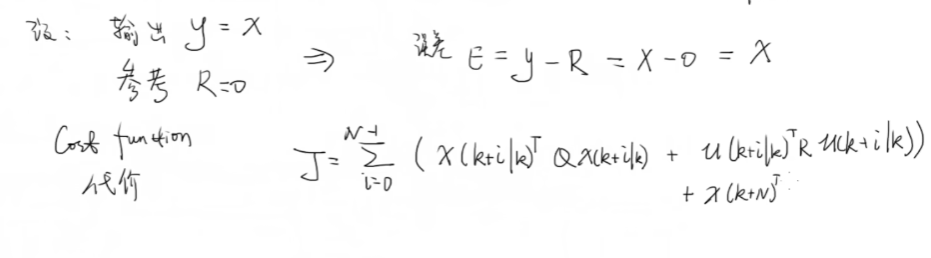 设： 输出 y = x ⇒ 误差 E = y - R = x - 0 = x
参考 R=0
Cost function
代价
J = \sum_{i=0}^{N-1} ( x(k+i|k)^T Q x(k+i|k) + u(k+i|k)^T R u(k+i|k))
+ x(k+N)^T